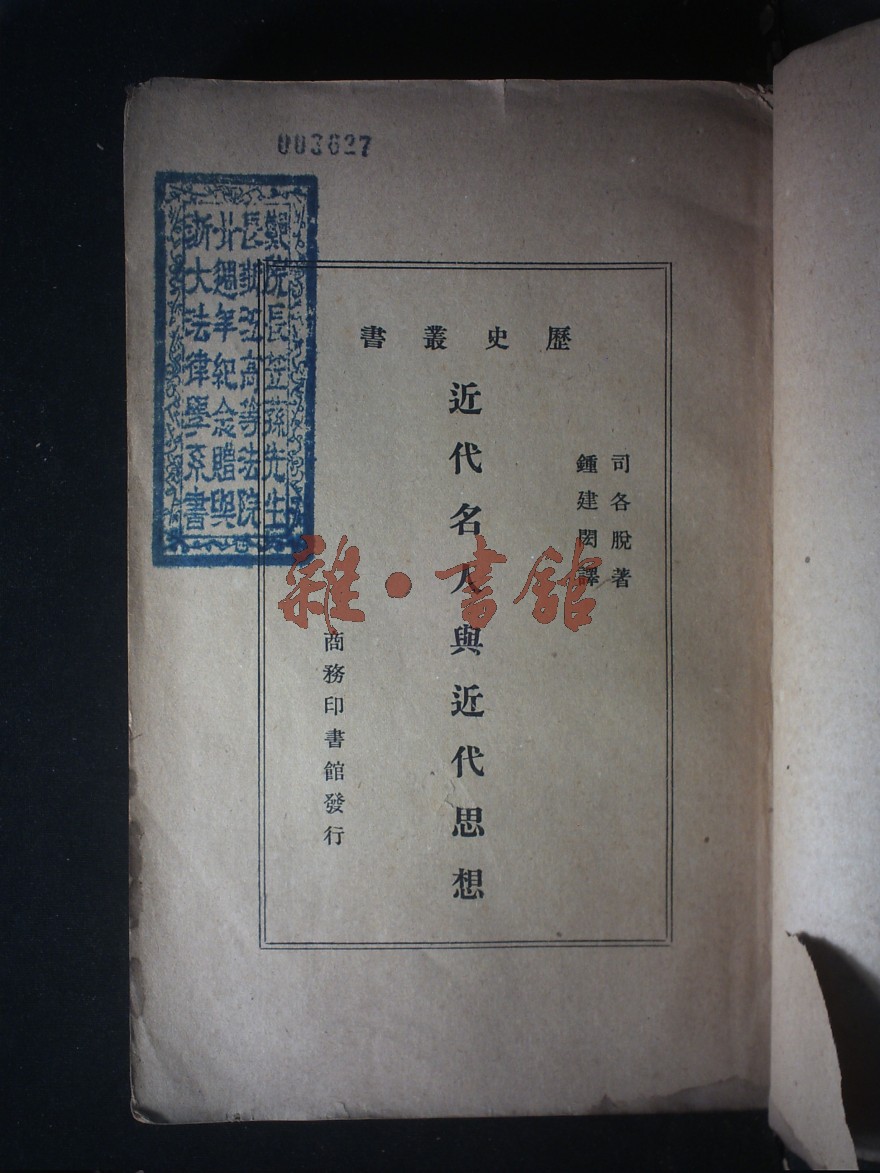 003627
鄭院長苙蓀先生
長浙江高等法院
廾週年紀念贈與
浙大法律學系書
歷史叢書
司各脫著
鍾建閎譯
近代名人與近代思想
商務印書館發行
雜·書館